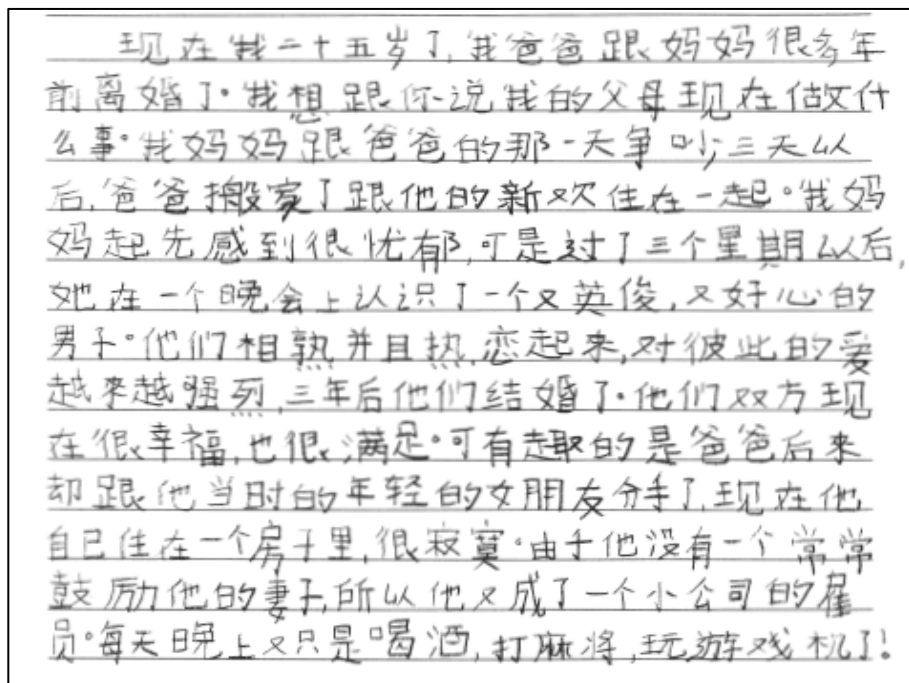 现在我二十五岁了,我爸爸跟妈妈很多年
前离婚了。我想跟你说我的父母现在做什
么事。我妈妈跟爸爸的那一天争吵,三天以
后,爸爸搬家了跟他的新欢住在一起。我妈
妈起先感到很忧郁,可是过了三个星期以后,
她在一个晚会上认识了一个又英俊,又好心的
男子。他们相熟并且热恋起来,对彼此的爱
越来越强烈,三年后他们结婚了。他们双方现
在很幸福,也很满足。可有趣的是爸爸后来
却跟他当时的年轻的女朋友分手了,现在他
自己住在一个房子里,很寂寞。由于他没有一个常常
鼓励他的妻子,所以他又成了一个小公司的雇
员。每天晚上又只是喝酒,打麻将,玩游戏机了!